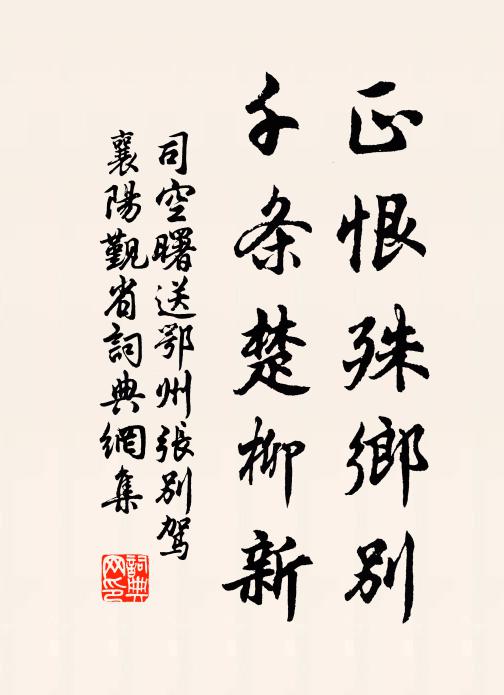 正恨殊鄉別
千条楚柳新
司空曙送鄂州張別駕
襄陽覲省詞典網集
詞典网印